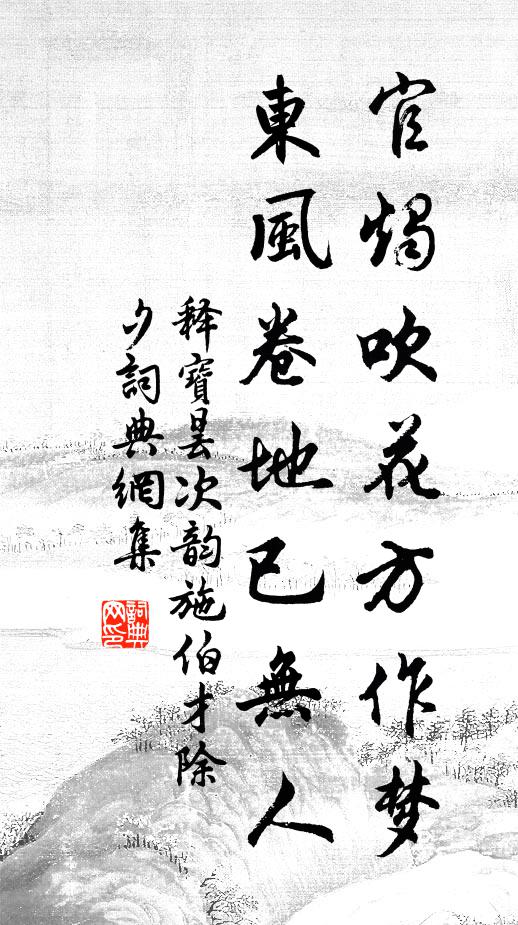 官燭吹花方作梦
東風卷地已無人
释寶曇次韵施伯才除
夕詞典網集
詞典网印